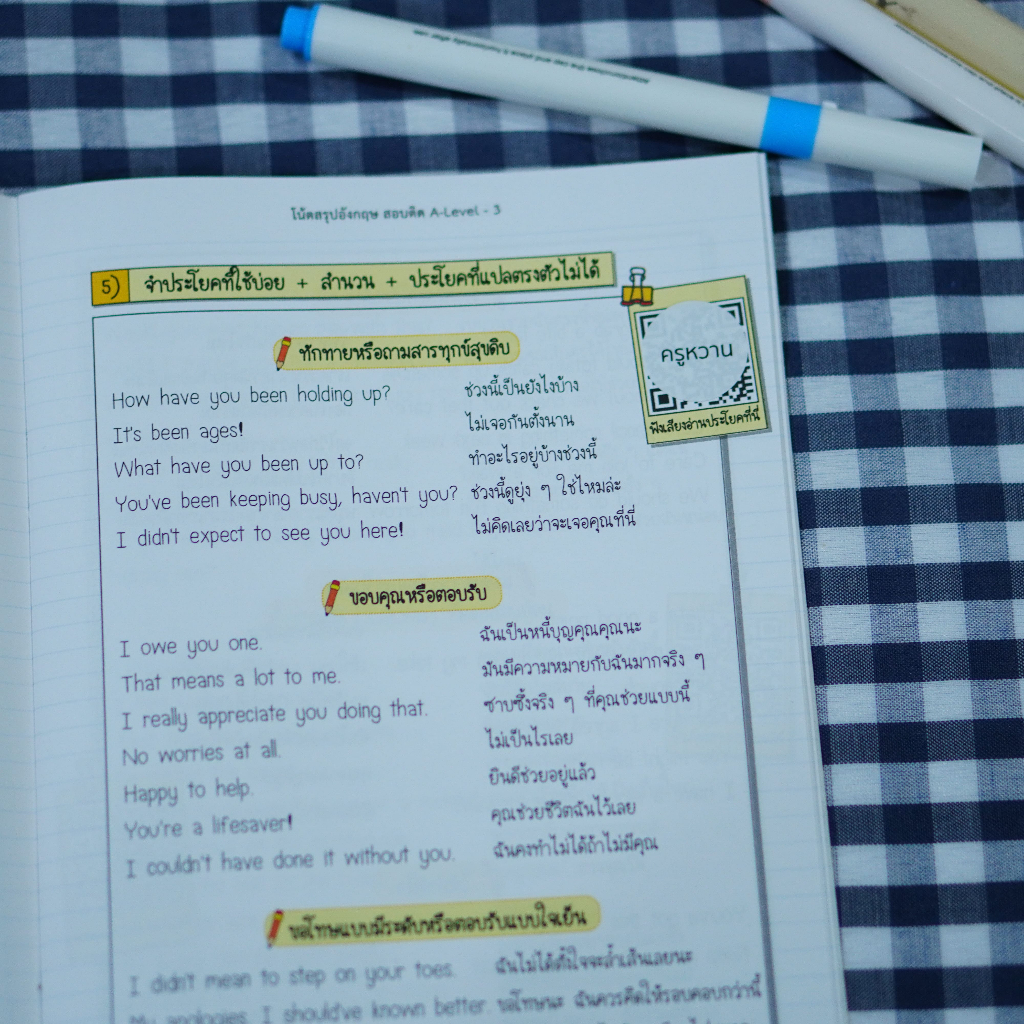 โน้ตสรุปอังกฤษ สอบติด A-Level - 3
5) จำประโยคที่ใช้บ่อย + สำนวน + ประโยคที่แปลตรงตัวไม่ได้
ครูหวาน
ฟังเสียงอ่านประโยคที่นี่
ทักทายหรือถามสารทุกข์สุขดิบ
How have you been holding up? ช่วงนี้เป็นยังไงบ้าง
It's been ages! ไม่เจอกันตั้งนาน
What have you been up to? ทำอะไรอยู่บ้างช่วงนี้
You've been keeping busy, haven't you? ช่วงนี้ดูยุ่ง ๆ ใช่ไหมล่ะ
I didn't expect to see you here! ไม่คิดเลยว่าจะเจอคุณที่นี่
ขอบคุณหรือตอบรับ
I owe you one. ฉันเป็นหนี้บุญคุณคุณนะ
That means a lot to me. มันมีความหมายกับฉันมากจริง ๆ
I really appreciate you doing that. ซาบซึ้งจริง ๆ ที่คุณช่วยแบบนี้
No worries at all. ไม่เป็นไรเลย
Happy to help. ยินดีช่วยอยู่แล้ว
You're a lifesaver! คุณช่วยชีวิตฉันไว้เลย
I couldn't have done it without you. ฉันคงทำไม่ได้ถ้าไม่มีคุณ
ขอโทษแบบมีระดับหรือตอบรับแบบใจเย็น
I didn't mean to step on your toes. ฉันไม่ได้ตั้งใจจะล้ำเส้นเลยนะ
My apologies. I should've known better. ขอโทษนะ ฉันควรคิดให้รอบคอบกว่านี้